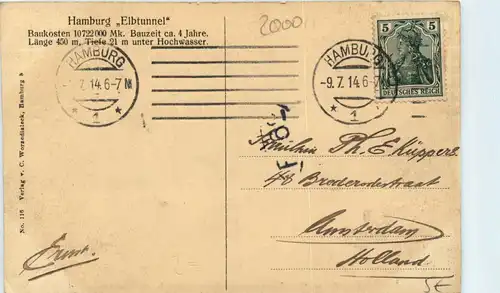 Hamburg „Elbtunnel"
Baukosten 10722000 Mk. Bauzeit ca. 4 Jahre.
Länge 450 m, Tiefe 21 m unter Hochwasser.
2000
HAMBURG
7.14.6-7N
* 1 *
HAMBURG
-9.7.14.6-7N
* 1 *
5 5
DEUTSCHES REICH
Th. E. Küppers
48
Amsterdam
Holland
Ernst.
5€
No. 116 Verlag v. C. Worzedialeck, Hamburg 8